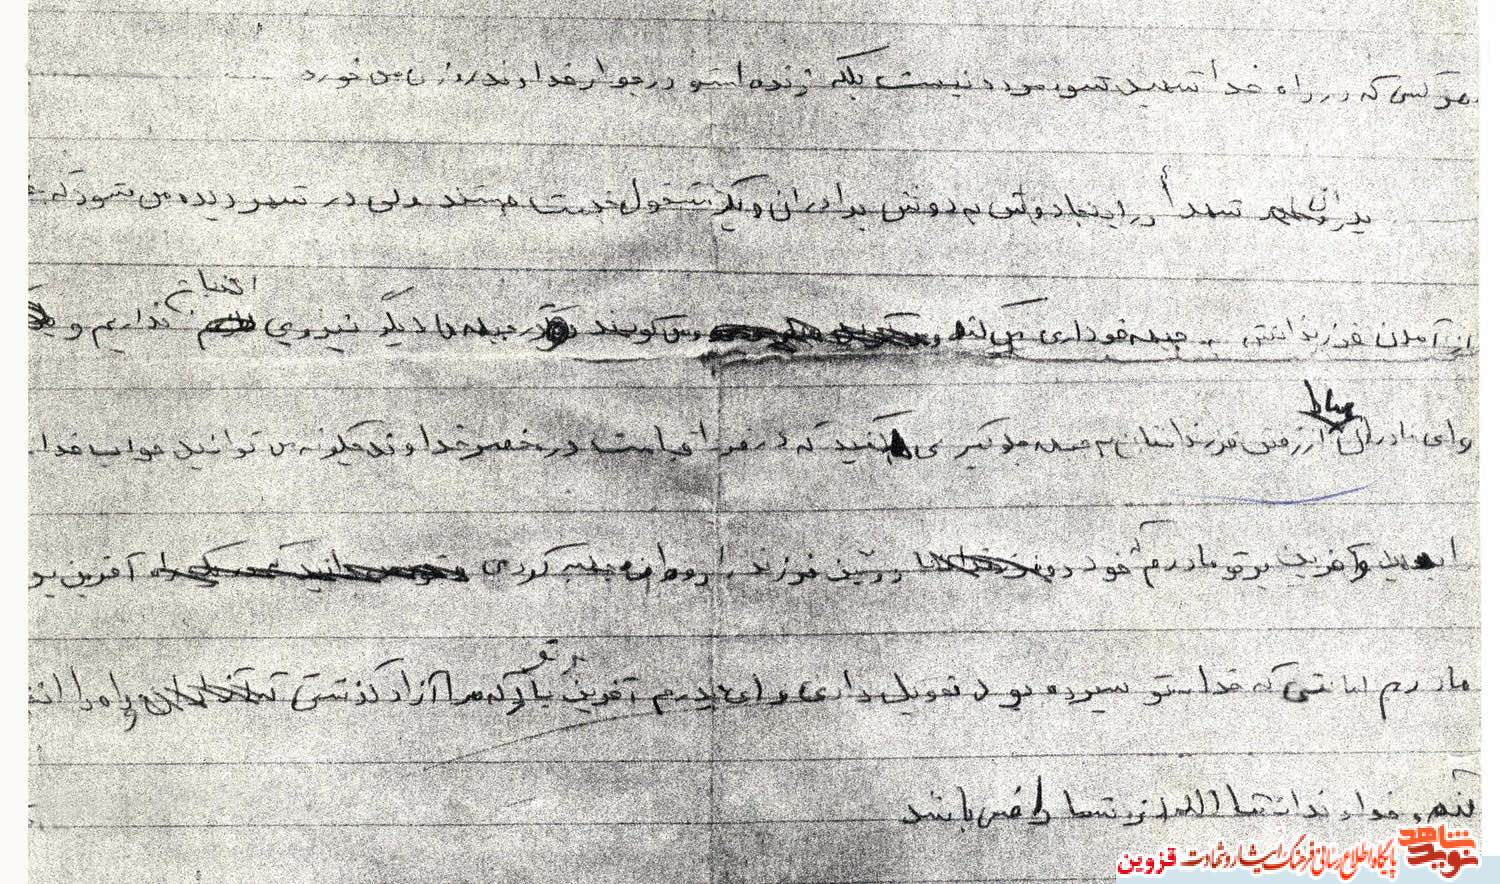 هر کسی که در راه خدا شهید شود مرده نیست بلکه زنده است و در جوار خداوند روزی می خورد
پدران شما در اینجا دوش به دوش برادران دیگر مشغول خدمت هستند ولی در شهر دیده می شود که
از آمدن فرزندانش به جبهه خودداری می کنند و می گویند در جبهه ما دیگر نیروی احتیاج نداریم و
وای مادران مبادا از رفتن فرزندانتان به جبهه جلوگیری کنید که فردا قیامت در محضر خداوند چگونه می توانید جواب خدا
و آفرین بر تو مادرم که خود فرزند را روانه جبهه کردی آفرین بر
مادرم امانتی که خدا بتو سپرده بود تحویل دادی و ای پدرم آفرین بر تو که مرا آزاد گذشتی راه را
کنم و خداوند انشا الله از شما راضی باشد
نوید شاهد پایگاه اطلاع رسانی فرهنگ ایثار و شهادت قزوین